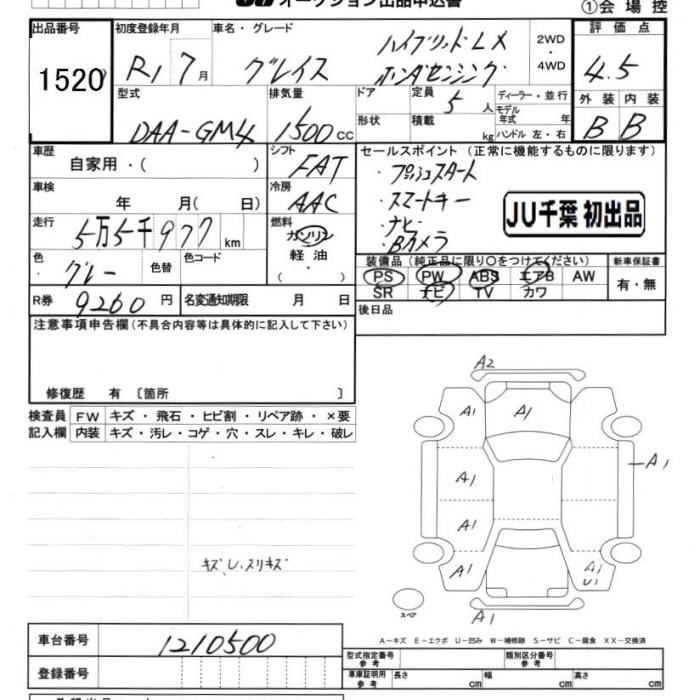 オークション出品申込書
①会場控
出品番号 初度登録年月 車名・グレード 評価点
1520 R1 7月 グレイス ハイブリッドLX ホンダセンシング 2WD・4WD 4.5
型式 排気量 ドア 定員 ディーラー・並行 外装 内装
DAA-GM4 1500CC 5人 モデル年式 年 B B
形状 積載 kg ハンドル 左・右
車歴 シフト セールスポイント(正常に機能するものに限ります)
自家用・( ) FAT ・プッシュスタート
車検 冷房 ・スマートキー
年 月( 日) AAC ・ナビ
走行 燃料 ・Bカメラ
5万5千977km ガソリン JU千葉 初出品
色 色替 色コード 軽油
グレー ・( )
装備品(純正品に限り○をつけてください) 新車保証書
PS PW ABS エアB AW 有・無
SR ナビ TV カワ
R券 9260円 名変通知期限 月 日
後日品
注意事項申告欄(不具合内容等は具体的に記入して下さい)
修復歴 有 〔箇所 〕
検査員 FW キズ・飛石・ヒビ割・リペア跡・×要
記入欄 内装 キズ・汚レ・コゲ・穴・スレ・キレ・破レ
A2
A1 A1
A1 A1
A1
A1 A1
U1
キズ、U、スリキズ
スペア
A1
A-キズ E-エクボ U-凹み W-補修跡 S-サビ C-腐食 XX-交換済
車台番号 1210500
型式指定番号 参考 類別区分番号 参考
登録番号
車庫証明用 参考 長さ cm 幅 cm 高さ cm